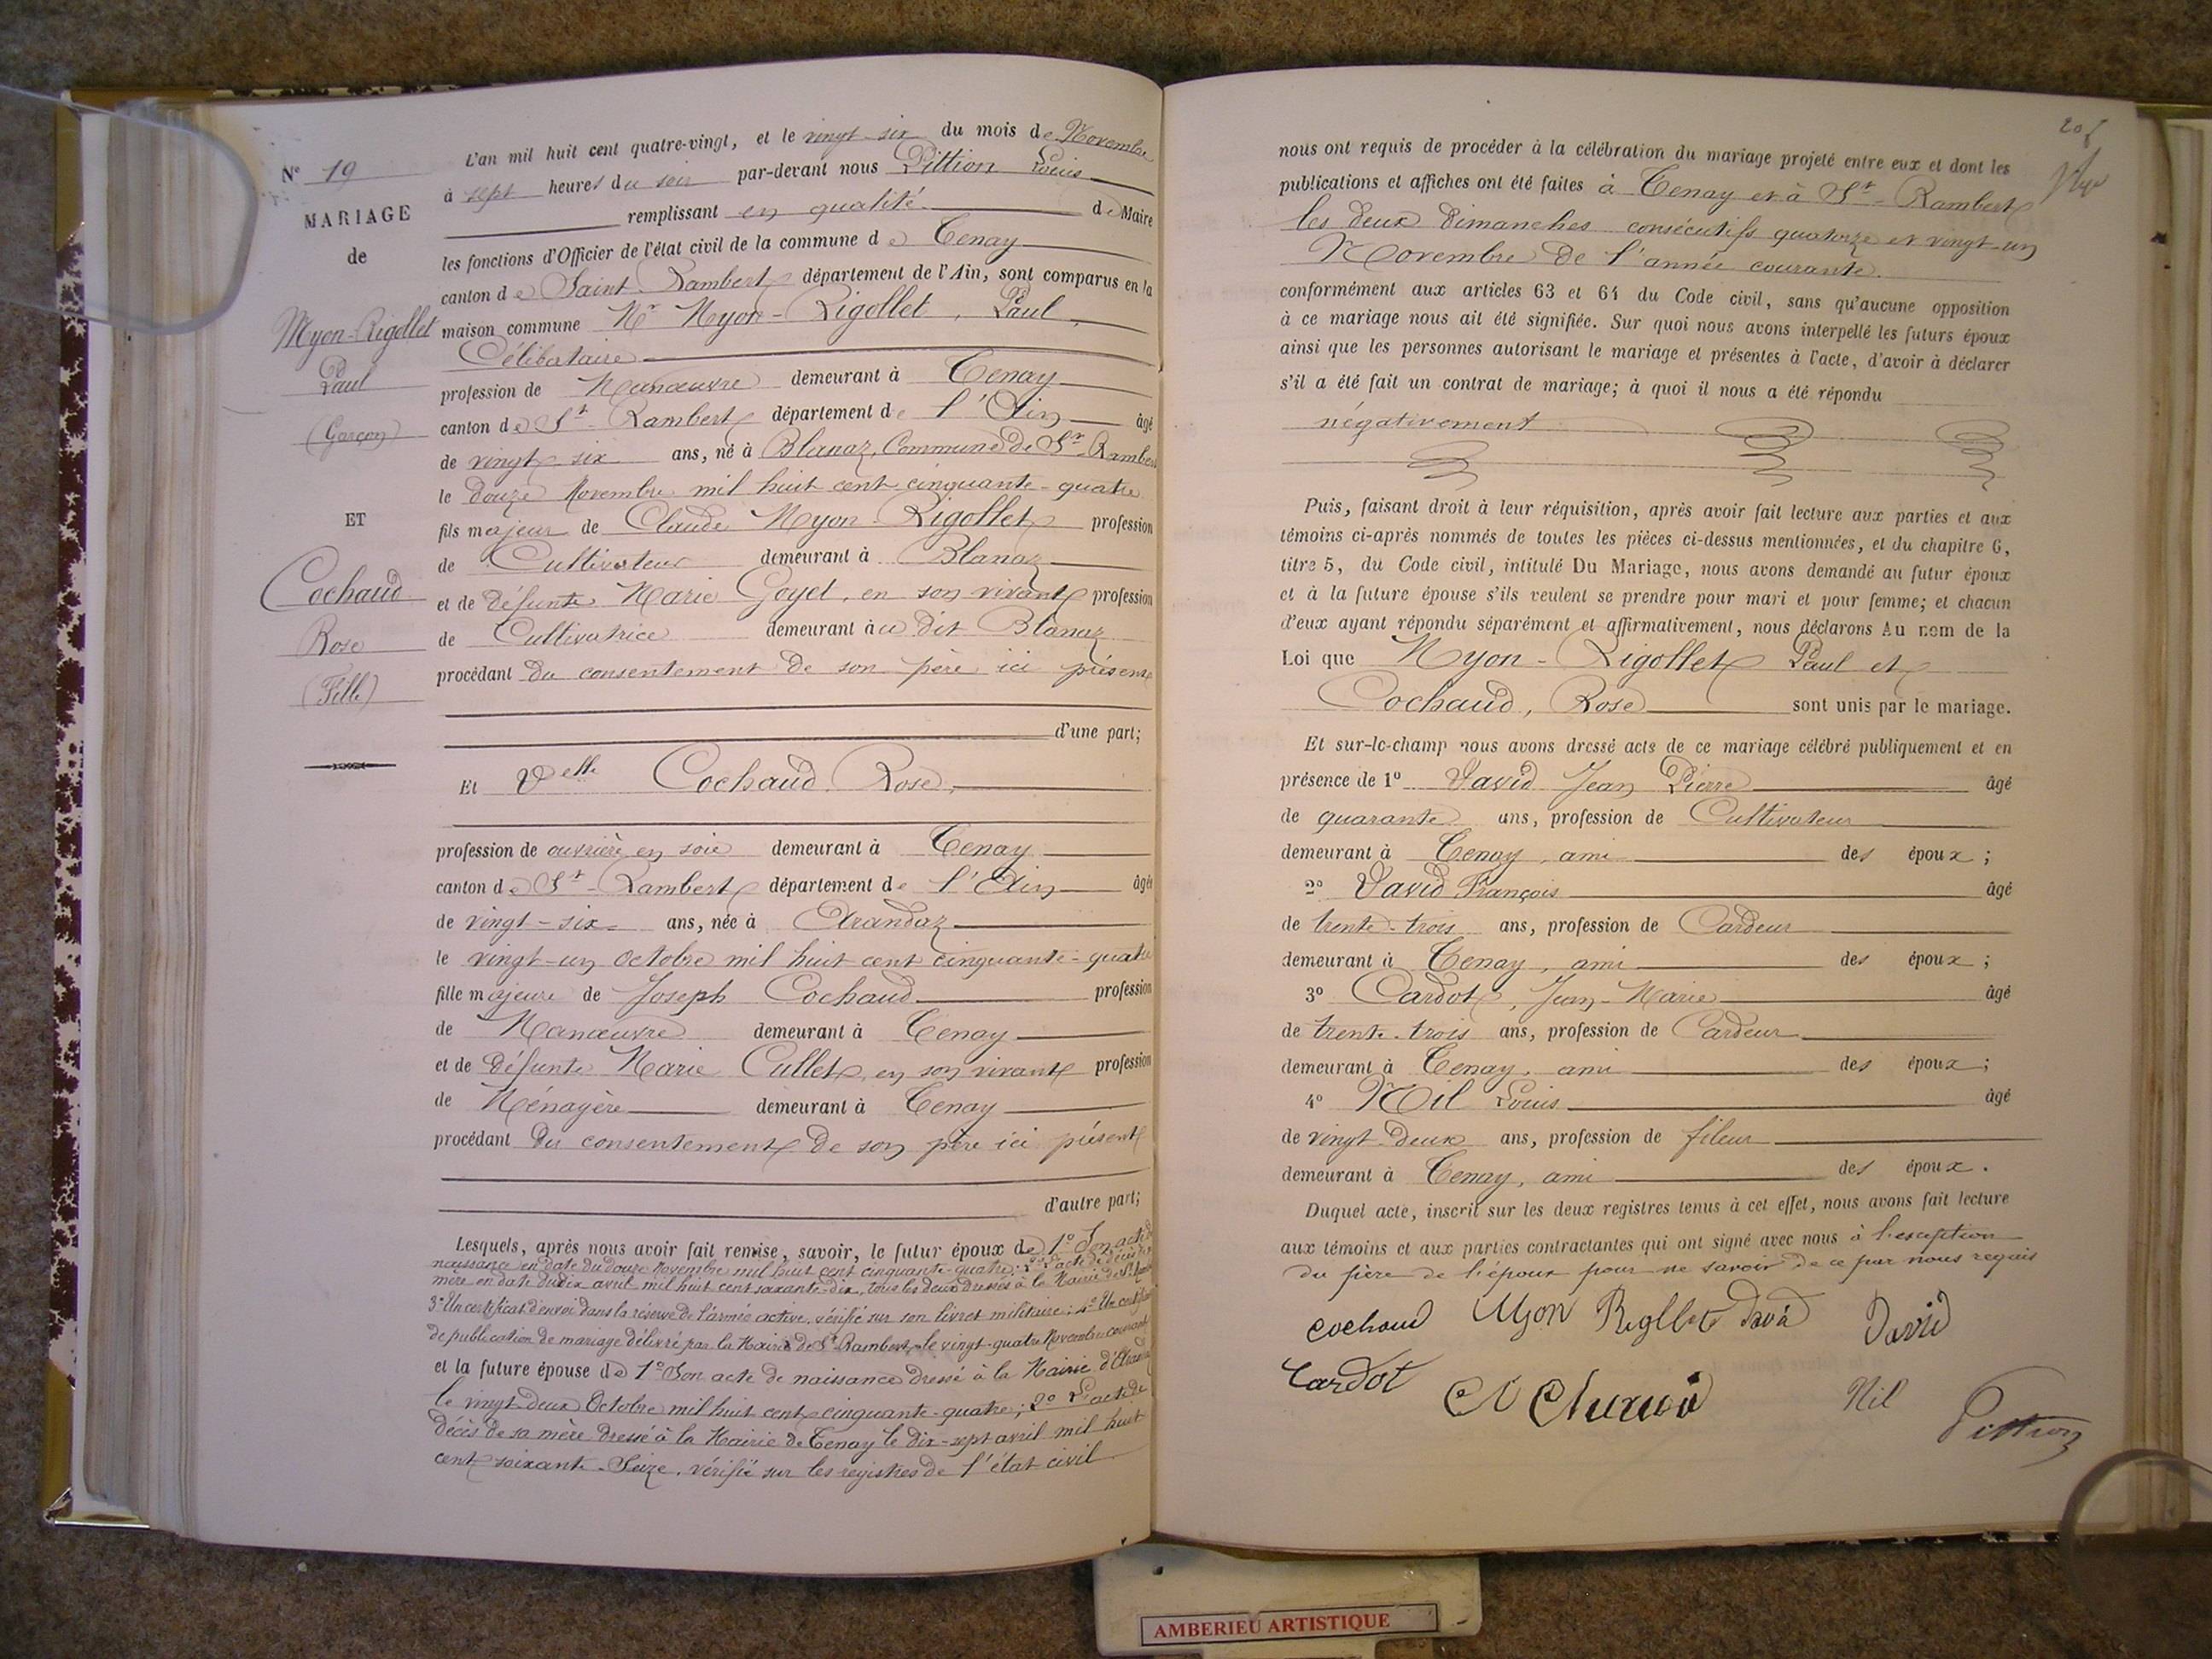 N° 19
MARIAGE
de
Myon-Rigollet
Paul
(Garçon)
ET
Cochaud
Rose
(Fille)
L'an mil huit cent quatre-vingt, et le vingt-six du mois de Novembre
à sept heures du soir par-devant nous Pittion Louis
remplissant en qualité de Maire
les fonctions d'Officier de l'état civil de la commune de Tenay
canton de Saint-Rambert département de l'Ain, sont comparus en la
maison commune Mr Myon-Rigollet, Paul,
Célibataire
profession de Manœuvre demeurant à Tenay
canton de St-Rambert département de l'Ain âgé
de vingt-six ans, né à Blanaz, Commune de St-Rambert
le douze Novembre mil huit cent cinquante-quatre
fils majeur de Claude Myon-Rigollet profession
de Cultivateur demeurant à Blanaz
et de défunte Marie Goyet, en son vivant profession
de Cultivatrice demeurant au dit Blanaz
procédant du consentement de son père ici présent
d'une part;
Et Delle Cochaud Rose,
profession de ouvrière en soie demeurant à Tenay
canton de St-Rambert département de l'Ain âgée
de vingt-six ans, née à Arandaz
le vingt-un Octobre mil huit cent cinquante-quatre
fille majeure de Joseph Cochaud profession
de Manœuvre demeurant à Tenay
et de défunte Marie Cullet, en son vivant profession
de Ménagère demeurant à Tenay
procédant du consentement de son père ici présent
d'autre part;
Lesquels, après nous avoir fait remise, savoir, le futur époux de 1° Son acte de
naissance en date du douze Novembre mil huit cent cinquante-quatre; 2° L'acte de décès de sa
mère en date du dix avril mil huit cent soixante-dix, tous les deux dressés à la Mairie de St
3° Un certificat d'envoi dans la réserve de l'armée active, vérifié sur son livret militaire; 4° Un certificat
de publication de mariage délivré par la Mairie de St-Rambert le vingt-quatre Novembre courant
et la future épouse de 1° Son acte de naissance dressé à la Mairie d'Arandaz
le vingt-deux Octobre mil huit cent cinquante-quatre; 2° L'acte de
décès de sa mère dressé à la Mairie de Tenay le dix-sept avril mil huit
cent soixante-Seize, vérifié sur les registres de l'état civil
nous ont requis de procéder à la célébration du mariage projeté entre eux et dont les
publications et affiches ont été faites à Tenay et à St-Rambert
les deux Dimanches consécutifs quatorze et vingt-un
Novembre de l'année courante.
conformément aux articles 63 et 64 du Code civil, sans qu'aucune opposition
à ce mariage nous ait été signifiée. Sur quoi nous avons interpellé les futurs époux
ainsi que les personnes autorisant le mariage et présentes à l'acte, d'avoir à déclarer
s'il a été fait un contrat de mariage; à quoi il nous a été répondu
négativement
Puis, faisant droit à leur réquisition, après avoir fait lecture aux parties et aux
témoins ci-après nommés de toutes les pièces ci-dessus mentionnées, et du chapitre 6,
titre 5, du Code civil, intitulé Du Mariage, nous avons demandé au futur époux
et à la future épouse s'ils veulent se prendre pour mari et pour femme; et chacun
d'eux ayant répondu séparément et affirmativement, nous déclarons Au nom de la
Loi que Myon-Rigollet Paul et
Cochaud, Rose sont unis par le mariage.
Et sur-le-champ nous avons dressé acte de ce mariage célébré publiquement et en
présence de 1° David Jean Pierre âgé
de quarante ans, profession de Cultivateur
demeurant à Tenay, ami des époux;
2° David François âgé
de trente-trois ans, profession de Cardeur
demeurant à Tenay, ami des époux;
3° Cardot, Jean-Marie âgé
de trente-trois ans, profession de Cardeur
demeurant à Tenay, ami des époux;
4° Nil Louis âgé
de vingt-deux ans, profession de fileur
demeurant à Tenay, ami des époux.
Duquel acte, inscrit sur les deux registres tenus à cet effet, nous avons fait lecture
aux témoins et aux parties contractantes qui ont signé avec nous à l'exception
du père de l'époux pour ne savoir de ce par nous requis
cochaud Myon Rigollet David David
Cardot Nil Pittion
AMBERIEU ARTISTIQUE